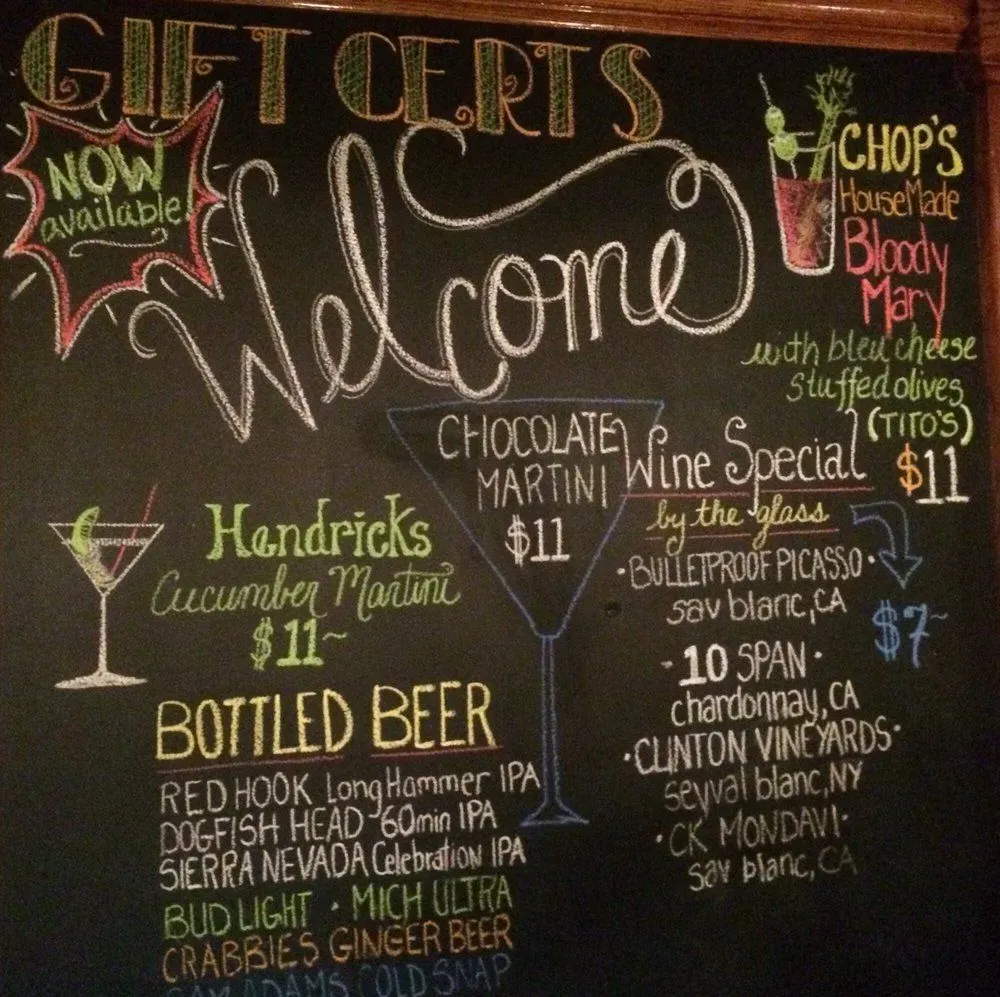 GIFT CERTS
NOW
available!
Welcome
CHOP'S
HouseMade
Bloody
Mary
with bleu cheese
stuffed olives
(TITO'S)
$11
CHOCOLATE
MARTINI
$11
Wine Special
by the glass
$7~
·BULLETPROOF PICASSO·
sav blanc, CA
- 10 SPAN ·
chardonnay, CA
·CLINTON VINEYARDS·
seyval blanc, NY
·CK MONDAVI·
sav blanc, CA
Hendricks
Cucumber Martini
$11~
BOTTLED BEER
RED HOOK Long Hammer IPA
DOGFISH HEAD 60min IPA
SIERRA NEVADA Celebration IPA
BUD LIGHT · MICH ULTRA
CRABBIES GINGER BEER
SAM ADAMS COLD SNAP